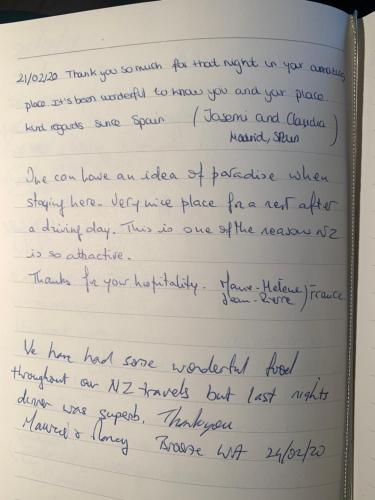 21/02/20 Thank you so much for that night in your amazing
place. It's been wonderful to know you and your place.
kind regards since Spain (Jasomi and Claudia)
Madrid, Spain
One can have an idea of paradise when
staying here. Very nice place for a rest after
a driving day. This is one of the reason NZ
is so attractive.
Thanks for your hopitality. Marie-Helene
Jean-Pierre) France
We have had some wonderful food
throughout our NZ travels but last nights
dinner was superb. Thankyou
Maurice & Nancy Broome WA 24/02/20